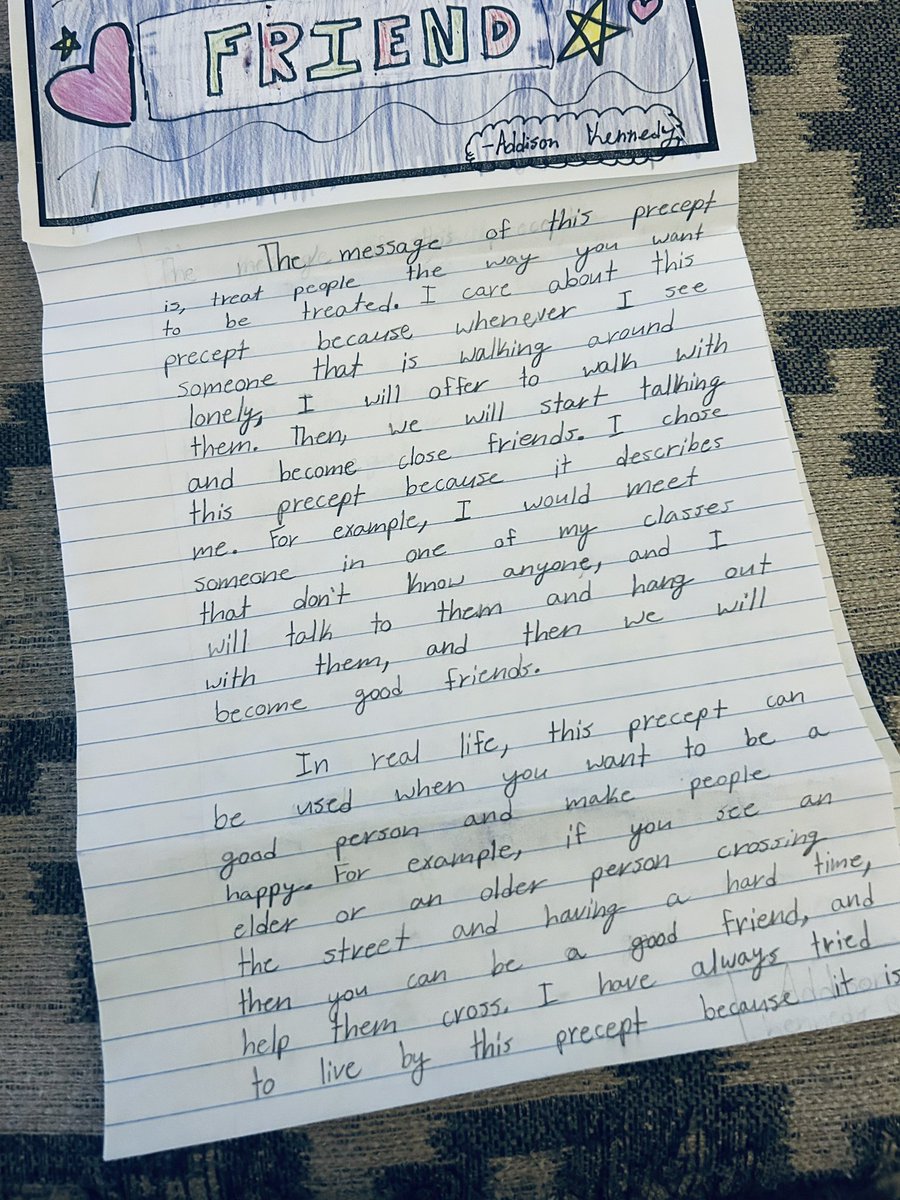 FRIEND
-Addison Kennedy
The message of this precept
is, treat people the way you want
to be treated. I care about this
precept because whenever I see
someone that is walking around
lonely, I will offer to walk with
them. Then, we will start talking
and become close friends. I chose
this precept because it describes
me. For example, I would meet
someone in one of my classes
that don't know anyone, and I
will talk to them and hang out
with them, and then we will
become good friends.
In real life, this precept can
be used when you want to be a
good person and make people
happy. For example, if you see an
elder or an older person crossing
the street and having a hard time,
then you can be a good friend, and
help them cross. I have always tried
to live by this precept because it is